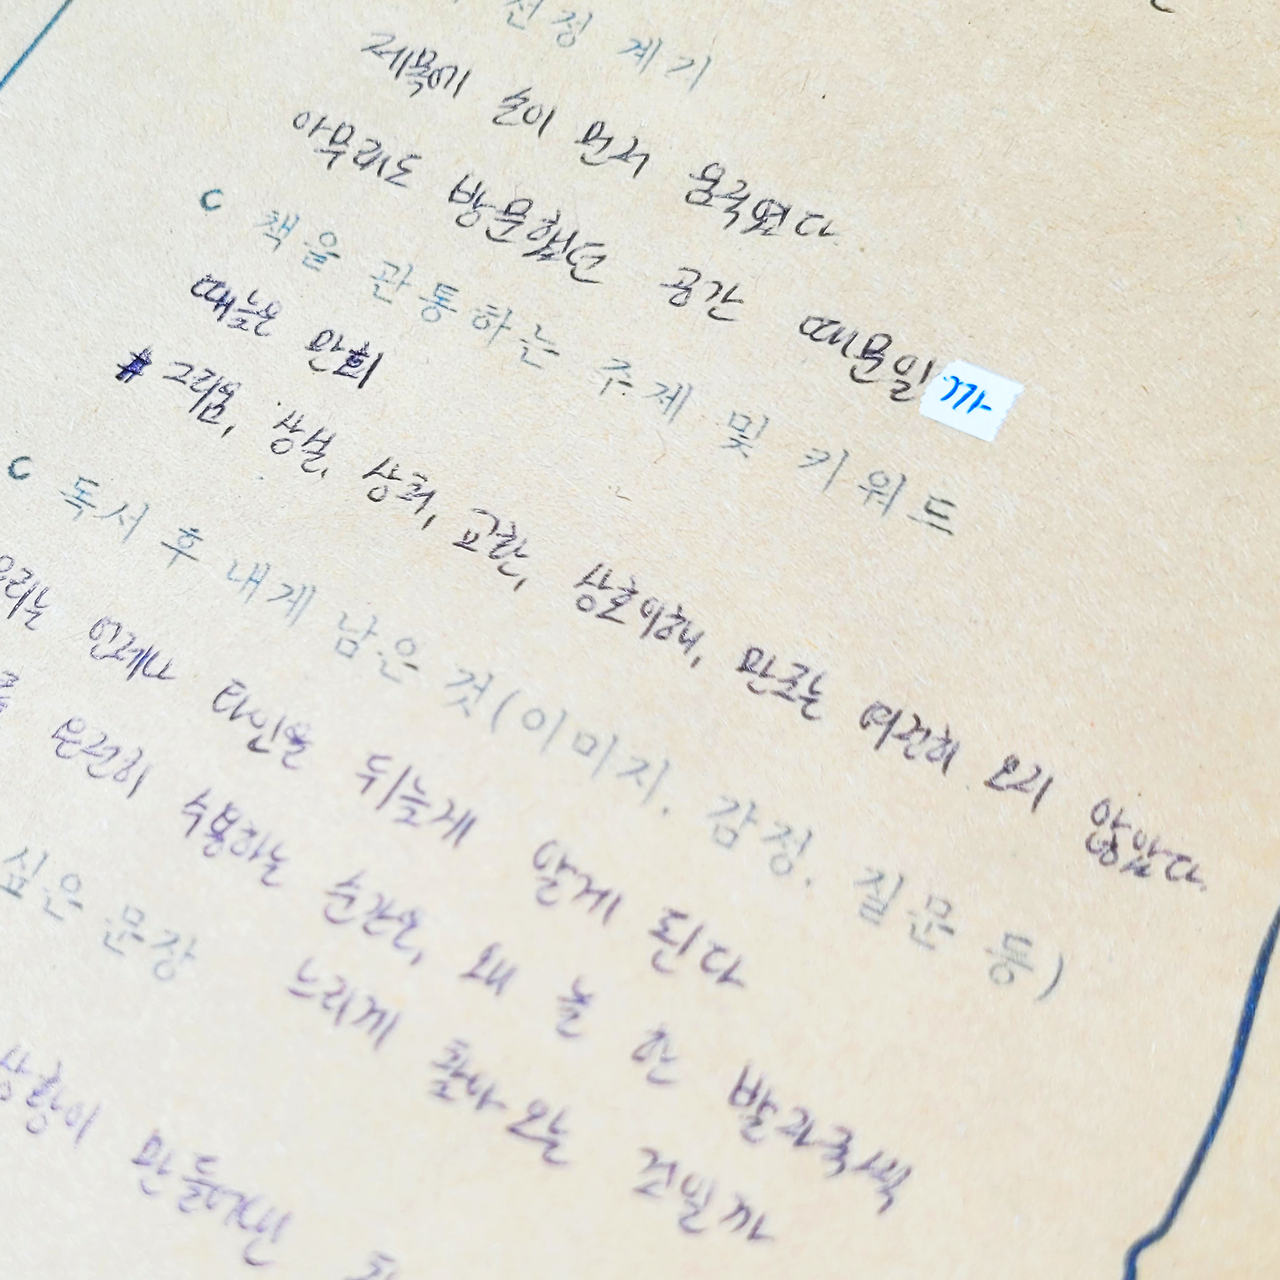 선정 계기
제목에 손이 먼저 움직였다
아무래도 방문했던 공간 때문일까
책을 관통하는 주제 및 키워드
때늦은 만회
# 그리움, 상실, 상처, 교환, 상호이해, 만조는 여전히 오지 않았다.
독서 후 내게 남은 것(이미지. 감정. 질문 등)
우리는 언제나 타인을 뒤늦게 알게 된다
온전히 수용하는 순간은, 왜 늘 한 발자국씩
느리게 찾아오는 것일까
싶은 문장
상황이 만들어낸